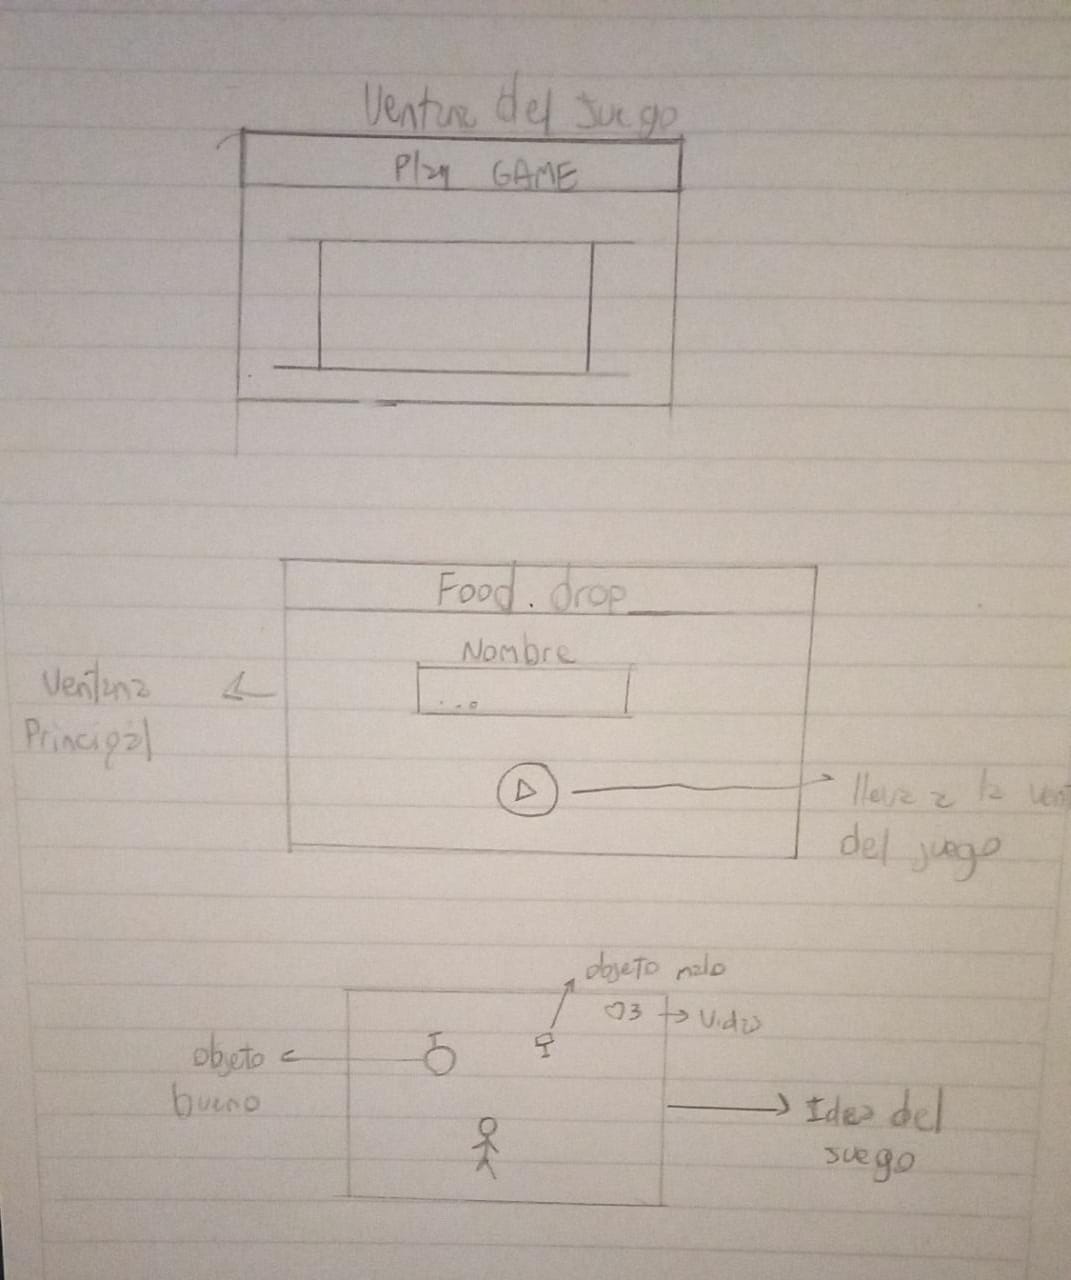 Ventana del Juego
Play GAME
Food. drop
Nombre
...
Ventana
Principal
lleva a la
del juego
objeto malo
03 → Vidas
objeto
bueno
Idea del
Juego